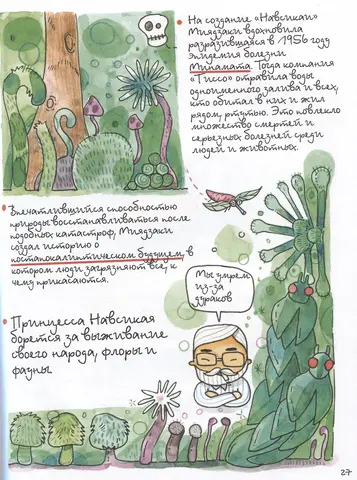 На создание «Навсикаи»
Миядзаки вдохновила
разразившаяся в 1956 году
эпидемия болезни
Минамата. Тогда компания
«Тиссо» отравила воды
одноименного залива и всех,
кто обитал в них и жил
рядом, ртутью. Это повлекло
множество смертей и
серьезных болезней среди
людей и животных.
Впечатлившийся способностью
природы восстанавливаться после
подобных катастроф, Миядзаки
создал историю о
постапокалиптическом будущем, в
котором люди загрязняют все, к
чему прикасаются.
Мы умрем
из-за
дураков
Принцесса Навсикая
борется за выживание
своего народа, флоры и
фауны
27